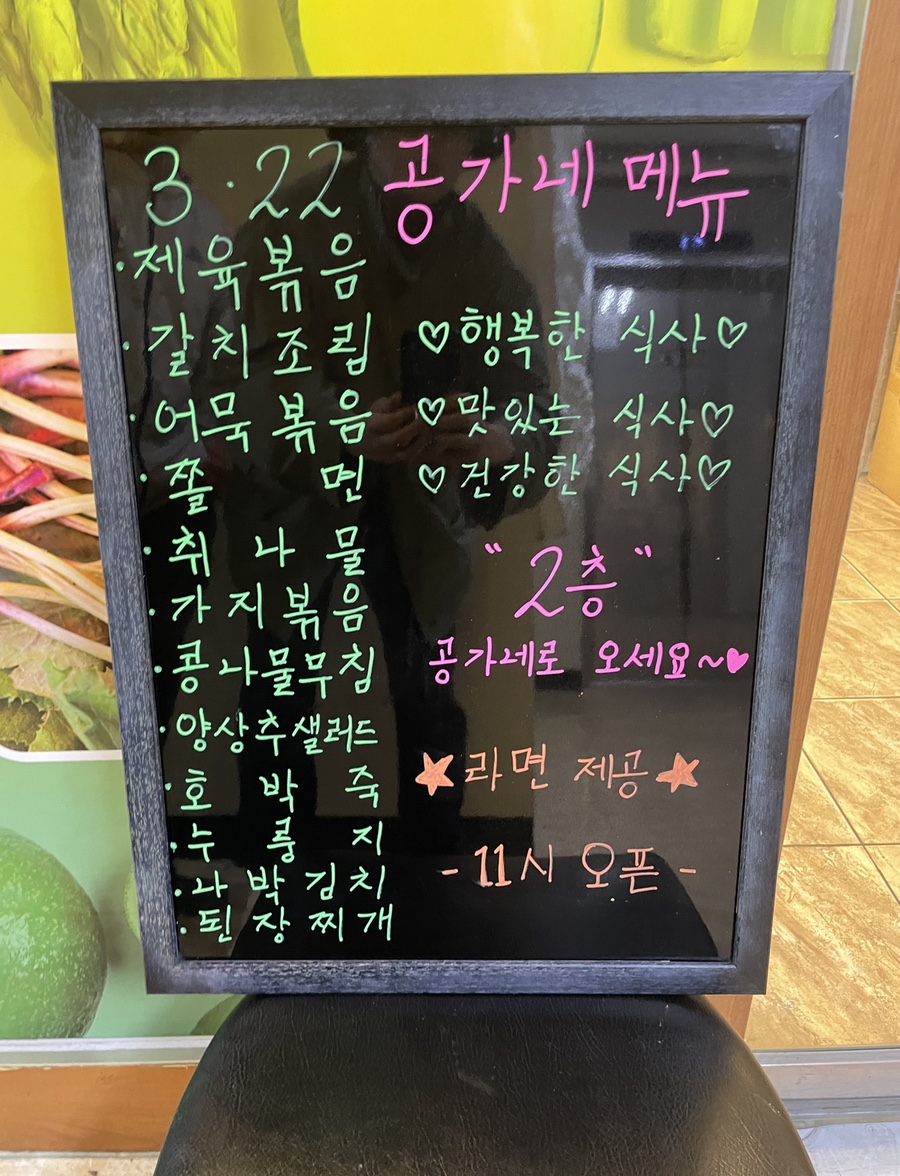 3.22 공가네 메뉴
·제육볶음
·갈치조림
·어묵볶음
·쫄면
·취나물
·가지볶음
·콩나물무침
·양상추샐러드
·호박죽
·누룽지
·나박김치
·된장찌개
♡행복한 식사♡
♡맛있는 식사♡
♡건강한 식사♡
"2층"
공가네로 오세요~♥
★라면 제공★
-11시 오픈-